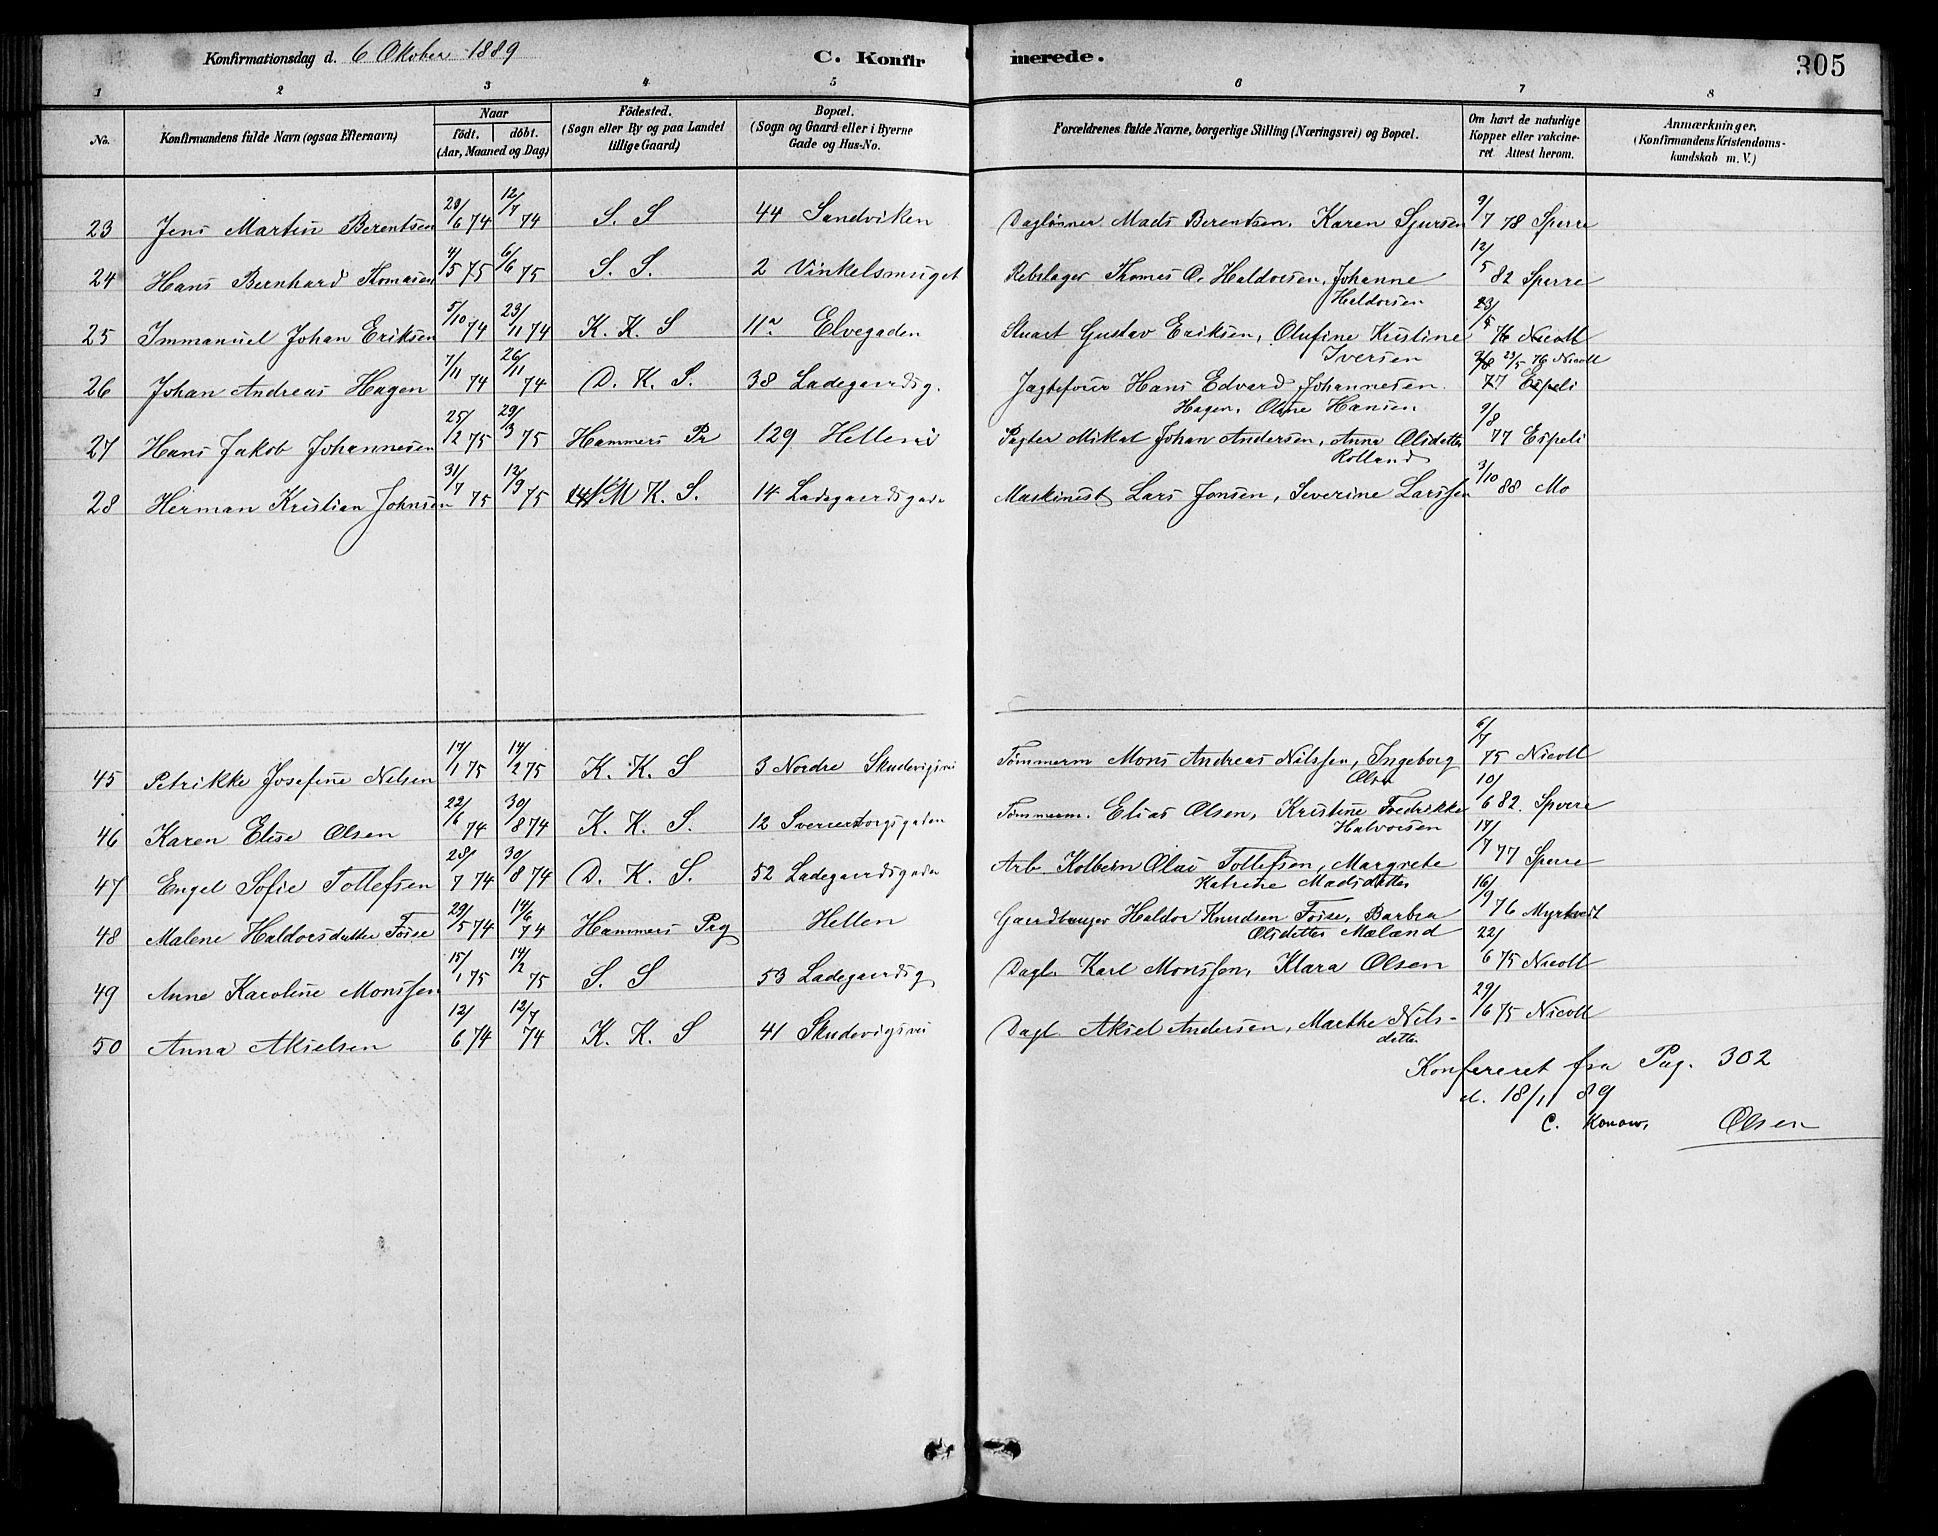 Konfirmationsdag d. 6 Oktober 1889 C. Konfirmerede. 305
1 2 3 4 5 6 7 8
No. Konfirmandens fulde Navn (ogsaa Efternavn) Naar födt. döbt. (Aar, Maaned og Dag) Födested. (Sogn eller By og paa Landet tillige Gaard) Bopæl. (Sogn og Gaard eller i Byerne Gade og Hus-No. Forældrenes fulde Navne, borgerlige Stilling (Næringsvei) og Bopæl. Om havt de naturlige Kopper eller vakcineret Attest herom. Anmærkninger. (Konfirmandens Kristendomskundskab m. V.)
23 Jens Martin Berentsen 6 74 12/7 74 S. S 44 Sandviken Daglønner Mads Berentsen, Karen Sjursen 9/7 78 Sperre
24 Hans Bernhard Thomasen 4/5 75 6/6 75 S. S. 2 Vinkelsmuget Rebslager Thomes O. Haldorsen, Johanne Haldorsen 12/5 82 Sperre
25 Immanuel Johan Eriksen 5/10 74 23/11 74 K. K. S 11a Elvegaden Stuart Gustav Eriksen, Olufine Kristine Iversen 76 Nicoll
26 Johan Andreas Hagen 7/11 74 26/11 74 D. K. S. 38 Ladegaardsg. Jagtefører Hans Edvard Johannesen Hagen, Oline Hansen 23/5 76 Nicoll 77 Espeli
27 Hans Jakob Johannesen 25/2 75 29/3 75 Hammers Pr 129 Hellevei Pagter Mikal Johan Andersen, Anna Olsdatter Rolland 9/8 77 Espeli
28 Herman Kristian Johnsen 31/7 75 12/9 75 M K. S. 14 Ladegaardsgade Maskinist Lars Jonsen, Severine Larssen 3/10 88 Mo
45 Petrikke Josefine Nelsen 17/1 75 14/2 75 K. K. S 3 Nordre Skudevigsvei Tømmerm Mons Andreas Nilssen, Ingeborg Olsen 6/7 75 Nicoll
46 Karen Elise Olsen 22/6 74 30/8 74 K. K. S. 12 Sverresborgsgaden Tømmerm. Elias Olsen, Kristine Fredrikke Halvorsen 10/6 82. Sperre
47 Engel Sofie Tollefsen 28/7 74 30/8 74 D. K. S. 52 Ladegaardsgade Arb Kolbein Olai Tollefsen, Margrete Katrine Madsdatter 17/7 77 Sperre
48 Malene Haldorsdatter Tosse 29/5 74 14/6 74 Hammers Prg Hellen Gaardbruger Haldor Knudsen Tosse, Barbra Olsdatter Mæland 16/9 76 Myrtvedt
49 Anne Karoline Monssen 15/1 75 14/2 75 S. S 53 Ladegaardsg Dagl. Karl Monssen, Klara Olsen 22/6 75 Nicoll
50 Anna Akselsen 12/6 74 12/7 74 K. K. S 41 Skudevigsvei Dagl Aksel Andersen, Marthe Nilsdatter 29/6 75 Nicoll
Konfereret fra Pag. 302
d. 18/11 89
C. Konow. Olsen